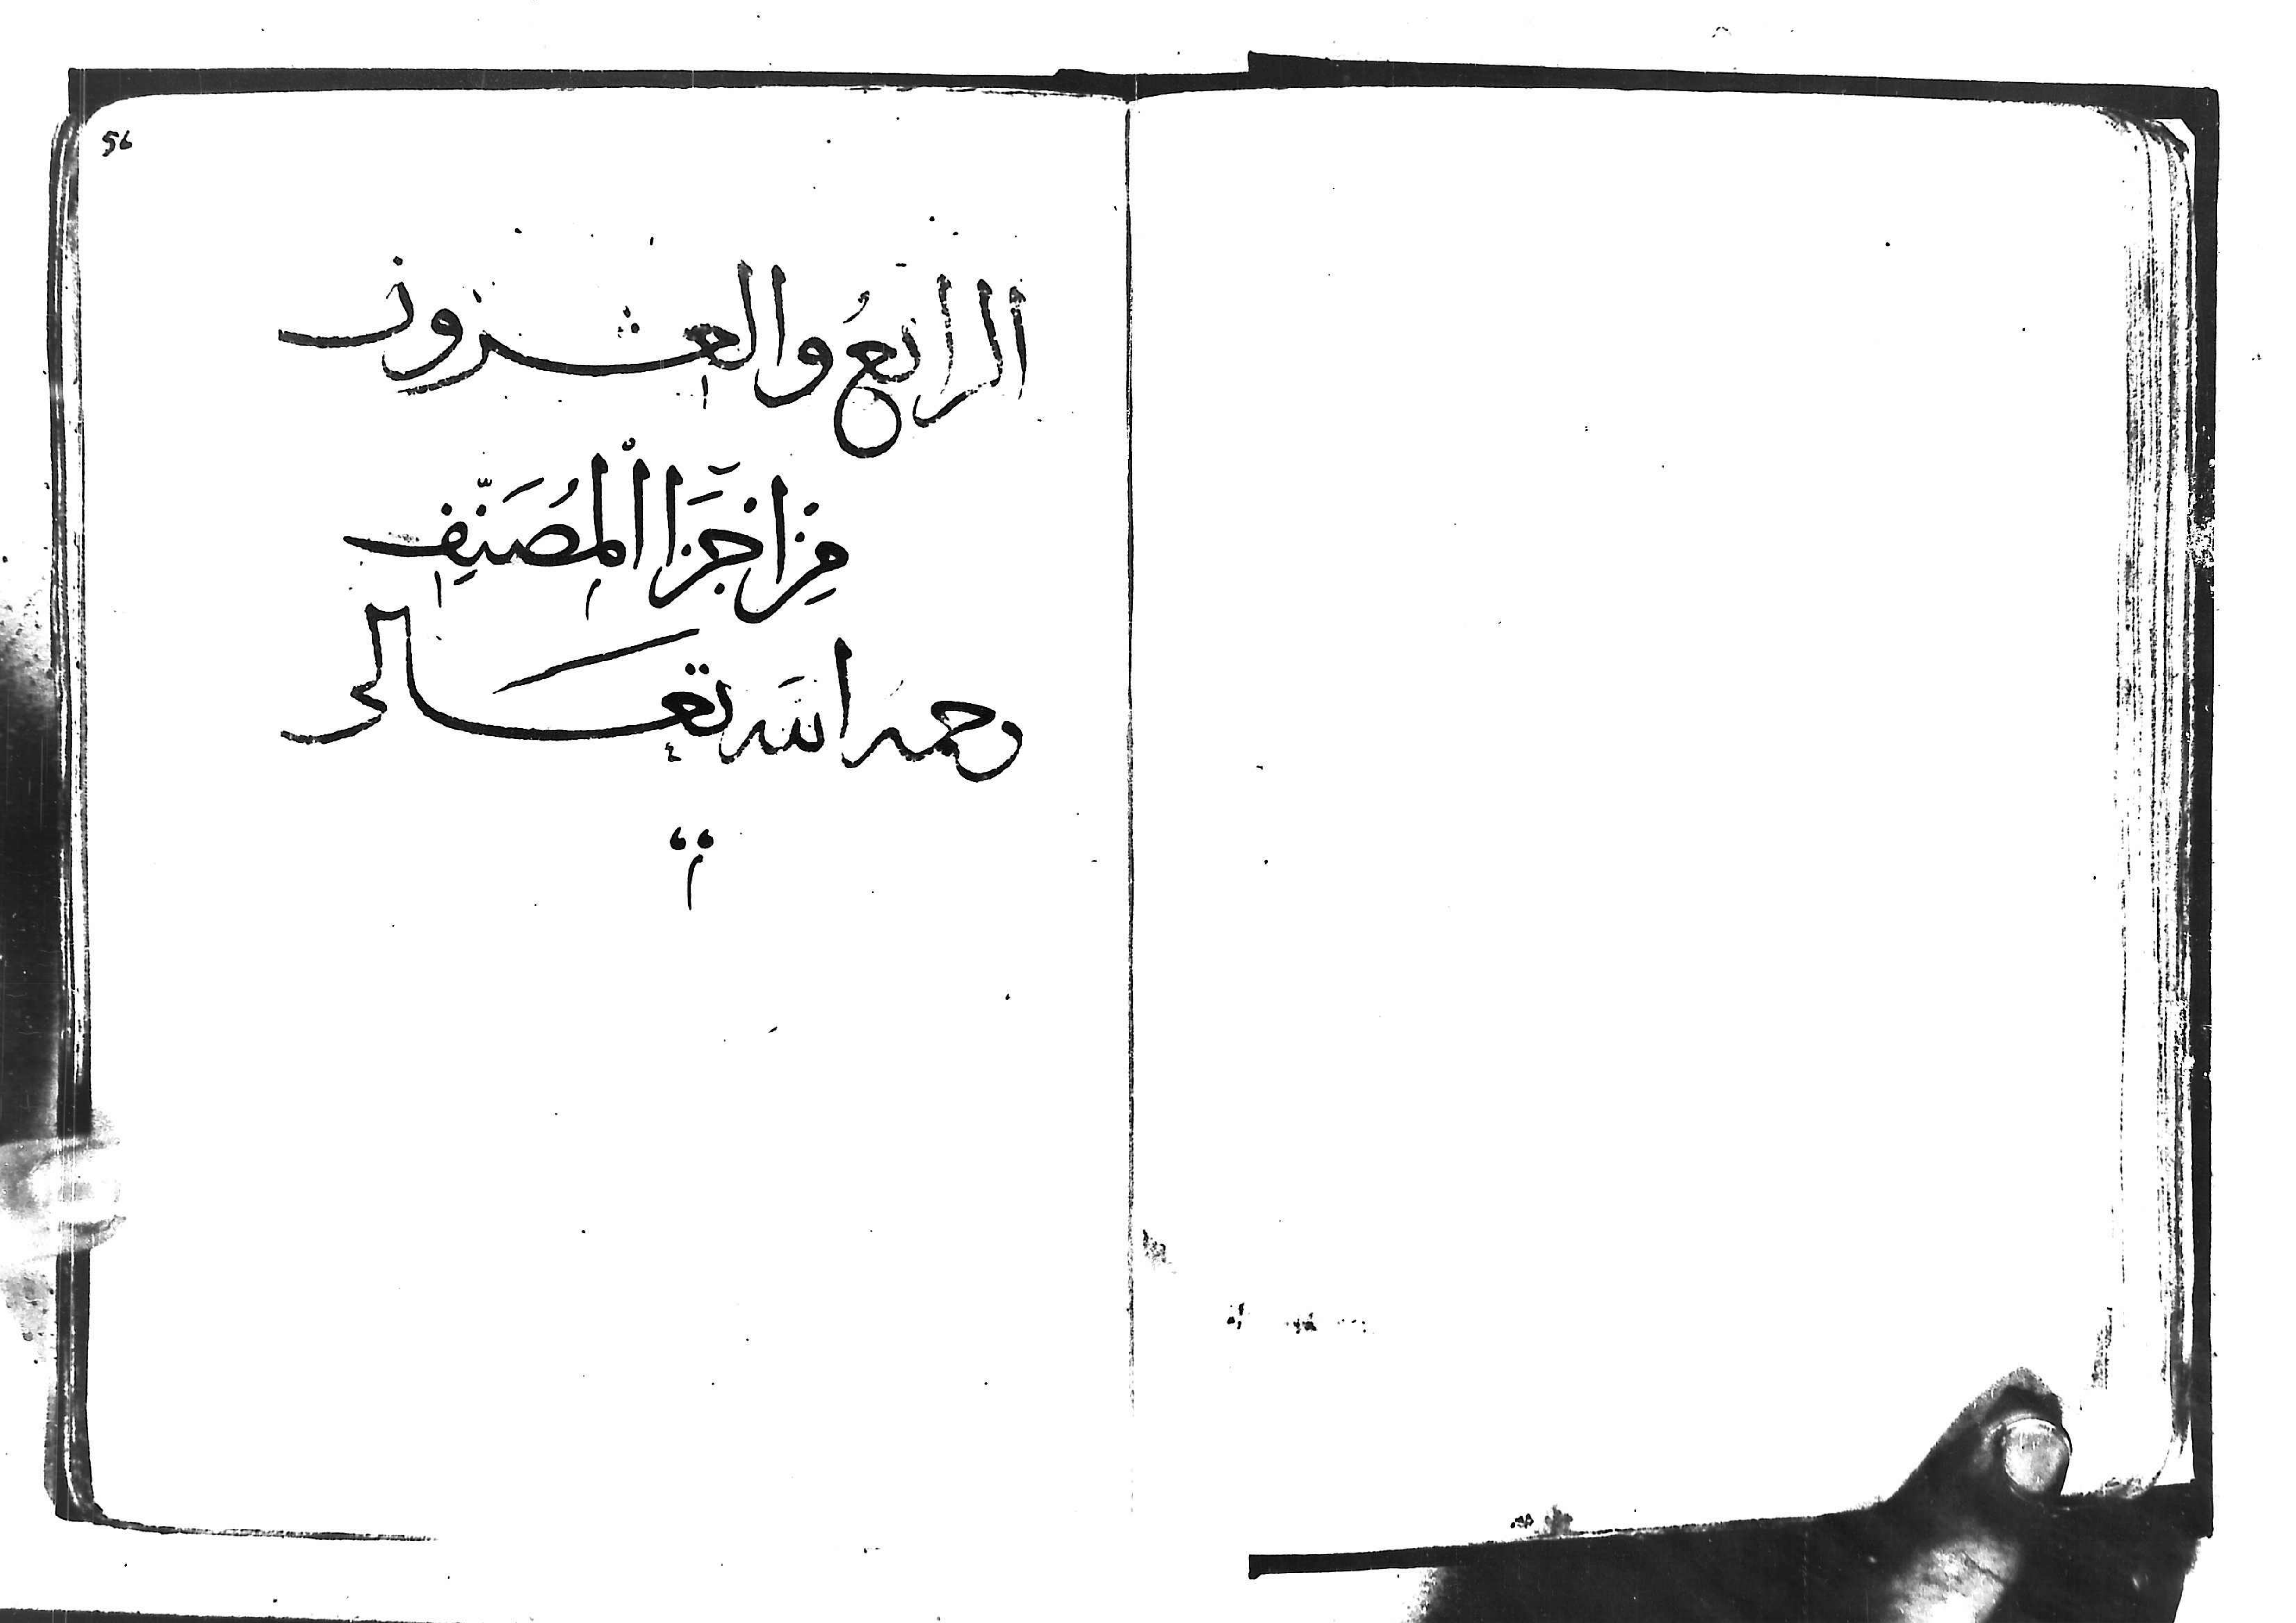 56
الرابعُ والعشرون
مِن اجزَا الْمُصَنِّفِ
رحمه الله تعَالى